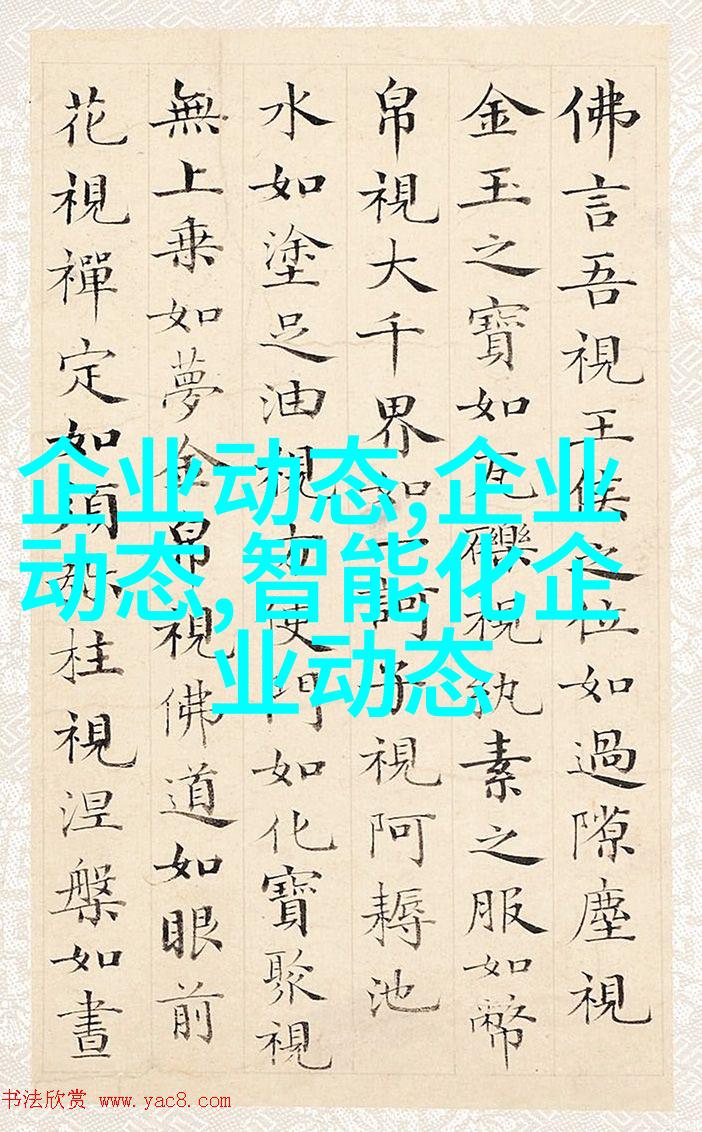 佛言吾視王侯之位如過隙塵視
金玉之寶如瓦礫視紈素之服如幣
帛視大千界如一訶子視阿耨池
水如塗足油視方便門如化寶聚視
無上乗如夢金帛視佛道如眼前
花視禪定如須弥柱視涅槃如晝
企业动态,企业
动态,智能化企
业动态
书法欣赏 www.yac8.com